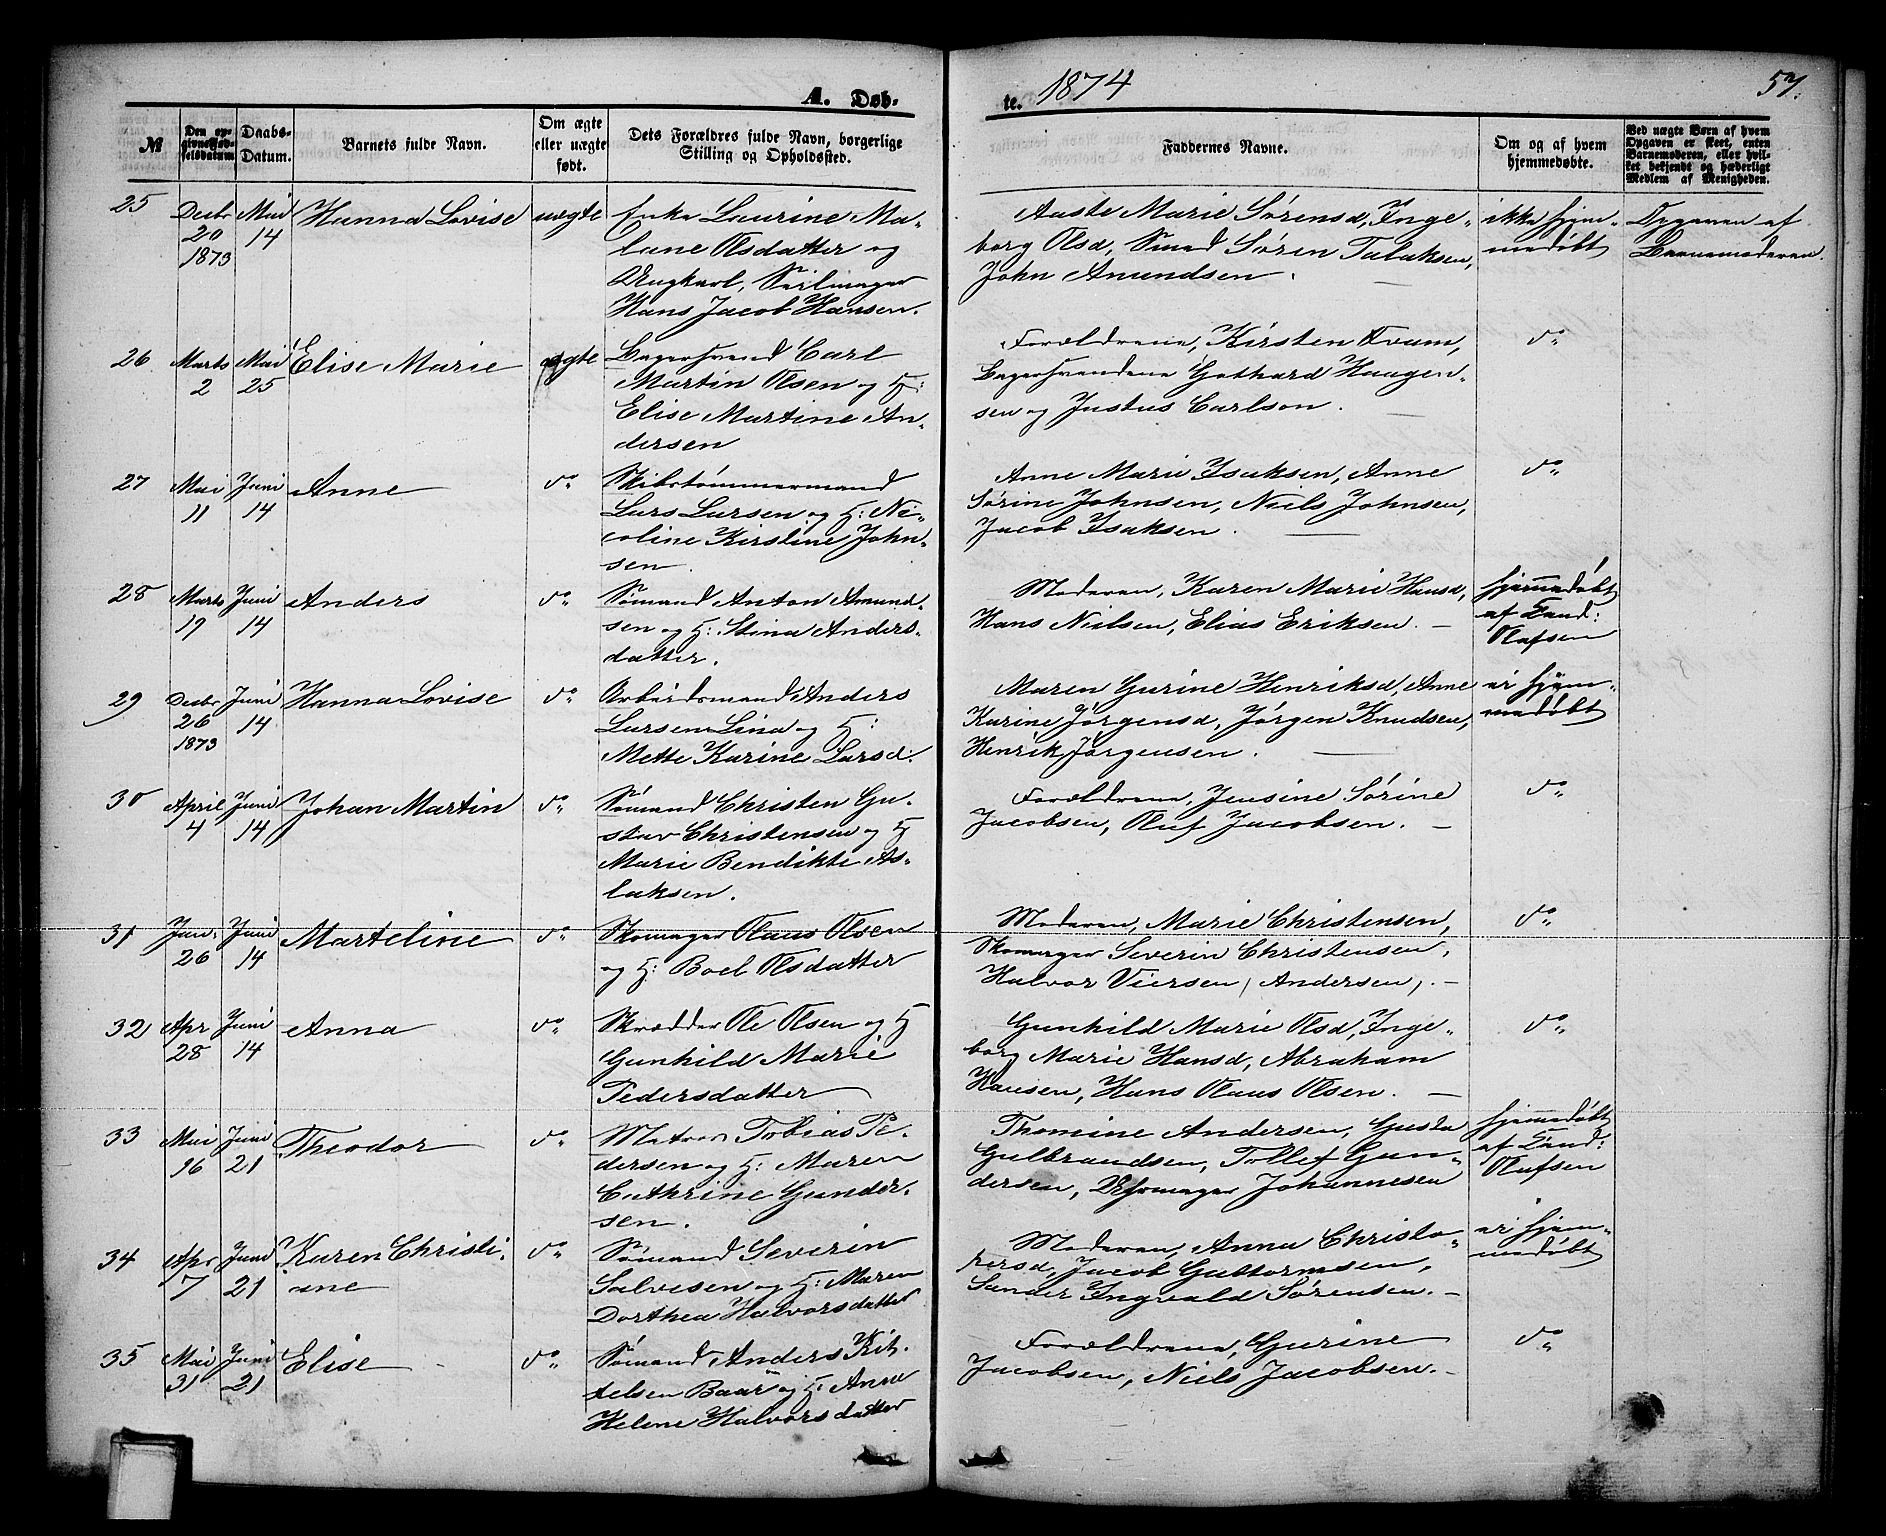 A. Døb-
te. 1874
57.
№
Den op-
givne Fød-
selsdatum
Daabs-
Datum.
Barnets fulde Navn.
Om ægte
eller uægte
født.
Dets Forældres fulde Navn, borgerlige
Stilling og Opholdssted.
Faddernes Navne.
Om og af hvem
hjemmedøbte.
Ved uægte Børn af hvem
Opgaven er skeet, enten
Barnemoderen, eller hvil-
ket bekjendt og hæderligt
Medlem af Menigheden.
25
Decbr
20
1873
Mai
14
Hanna Lovise
uægte
Enke Laurine Ma-
lene Olsdatter og
Ungkarl, Seilmager
Hans Jacob Hansen.
Aaste Marie Sørensd, Inge-
borg Olsd, Smed Søren Talaksen,
John Amundsen.
ikke hjem-
medøbt
Opgaven af
Barnemoderen.
26
Marts
2
Mai
25
Elise Marie
ægte
Bagersvend Carl
Martin Olsen og H:
Elise Martine An-
dersen
Forældrene, Kirsten Tvam,
Bagersvendene Gothard Haagen-
sen og Justus Carlson.
do
27
Mai
11
Juni
14
Anne
do
Skibstømmermand
Lars Larsen og H: Ni-
coline Kirstine John-
sen.
Anne Marie Isaksen, Anne
Sørine Johnsen, Niels Johnsen,
Jacob Isaksen.
do
28
Marts
17
Juni
14
Anders
do
Sømand Anton Amund-
sen og H: Stina Anders-
datter.
Moderen, Karen Marie Hansd,
Hans Nielsen, Elias Eriksen.
hjemmedøbt
af Cand:
Olafsen
29
Decbr
26
1873
Juni
14
Hanna Lovise
do
Arbeidsmand Anders
Larsen Lina og H:
Mette Karine Larsd:
Maren Gurine Henriksd, Anne
Karine Jørgensd, Jørgen Knudsen,
Henrik Jørgensen.
ei hjem-
medøbt
30
April
4
Juni
14
Johan Martin
do
Sømand Christen Gu-
stav Christensen og H
Marie Bendikte As-
laksen.
Forældrene, Jensine Sørine
Jacobsen, Oluf Jacobsen.
do
31
Jan.
26
Juni
14
Marteline
do
Skomager Olaus Olsen
og H: Boel Olsdatter
Moderen, Marie Christensen,
Skomager Severin Christensen,
Halvor Viersen (Andersen).
do
32
Apr
28
Juni
14
Anna
do
Skrædder Ole Olsen og H
Gunhild Marie
Pedersdatter
Gunhild Marie Olsd, Inge-
borg Marie Hansd, Abraham
Hansen, Hans Olaus Olsen.
do
33
Mai
16
Juni
21
Theodor
do
Matros Tobias Pe-
dersen og H: Maren
Cathrine Gunder-
sen.
Thomine Andersen, Gusta
Gulbrandsen, Tollef Gun-
dersen, Uhrmager Johannesen
hjemmedøbt
af Cand:
Olafsen
34
Apr
7
Juni
21
Karen Christi-
ane
do
Sømand Severin
Salvesen og H: Maren
Dorthea Halvorsdatter
Moderen, Anna Christo-
fersd, Jacob Guttormsen,
Sander Ingvald Sørensen.
ei hjem-
medøbt
35
Mai
31
Juni
21
Elise
do
Sømand Anders Kit-
telsen Baar og H: Anne
Helene Halvorsdatter
Forældrene, Gurine
Jacobsen, Niels Jacobsen.
do